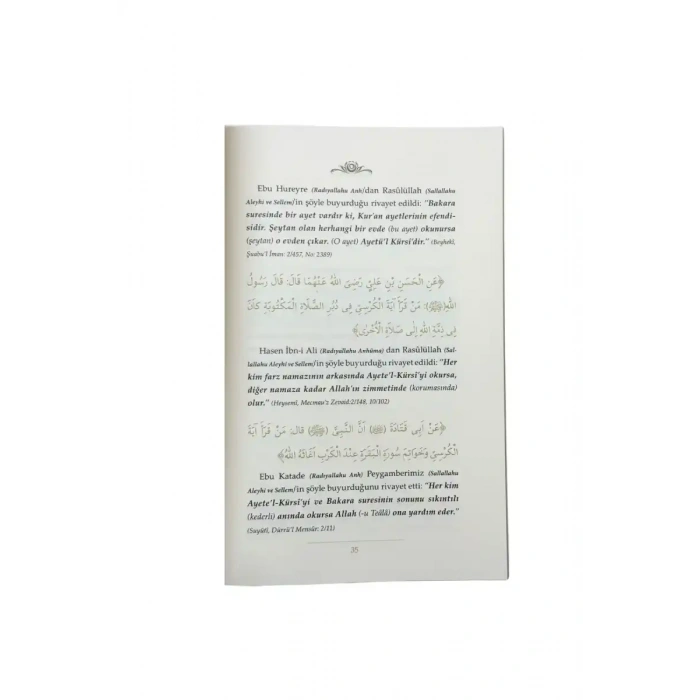 Ebu Hureyre (Radıyallahu Anh)'dan Rasûlüllah (Sallallahu
Aleyhi ve Sellem)'in şöyle buyurduğu rivayet edildi: "Bakara
suresinde bir ayet vardır ki, Kur'an ayetlerinin efendi-
sidir. Şeytan olan herhangi bir evde (bu ayet) okunursa
(şeytan) o evden çıkar. (O ayet) Ayetü'l Kürsi'dir." (Beyhekî,
Şuabu'l İman: 2/457, No: 2389)
﴿عَنِ الْحَسَنِ بْنِ عَلِيٍّ رَضِيَ اللهُ عَنْهُمَا قَالَ: قَالَ رَسُولُ
اللهِ(ﷺ): مَنْ قَرَأَ آيَةَ الْكُرْسِيِّ فِي دُبُرِ الصَّلَاةِ الْمَكْتُوبَةِ كَانَ
فِي ذِمَّةِ اللهِ إِلَى صَلَاةِ الْأُخْرَى﴾
Hasen İbn-i Ali (Radıyallahu Anhüma) dan Rasûlüllah (Sal-
lallahu Aleyhi ve Sellem)'in şöyle buyurduğu rivayet edildi: "Her
kim farz namazının arkasında Ayete'l-Kürsî'yi okursa,
diğer namaza kadar Allah'ın zimmetinde (korumasında)
olur." (Heysemî, Mecmau'z Zevaid:2/148, 10/102)
﴿عَنْ أَبِي قَتَادَةَ (ﷺ) أَنَّ النَّبِيَّ (ﷺ) قَالَ: مَنْ قَرَأَ آيَةَ
الْكُرْسِيِّ وَخَوَاتِمَ سُورَةِ الْبَقَرَةِ عِنْدَ الْكَرْبِ أَغَاثَهُ اللهُ﴾
Ebu Katade (Radıyallahu Anh) Peygamberimiz (Sallallahu
Aleyhi ve Sellem)'in şöyle buyurduğunu rivayet etti: "Her kim
Ayete'l-Kürsî'yi ve Bakara suresinin sonunu sıkıntılı
(kederli) anında okursa Allah (-u Teâlâ) ona yardım eder."
(Suyûtî, Dürrü'l Mensûr: 2/11)
35